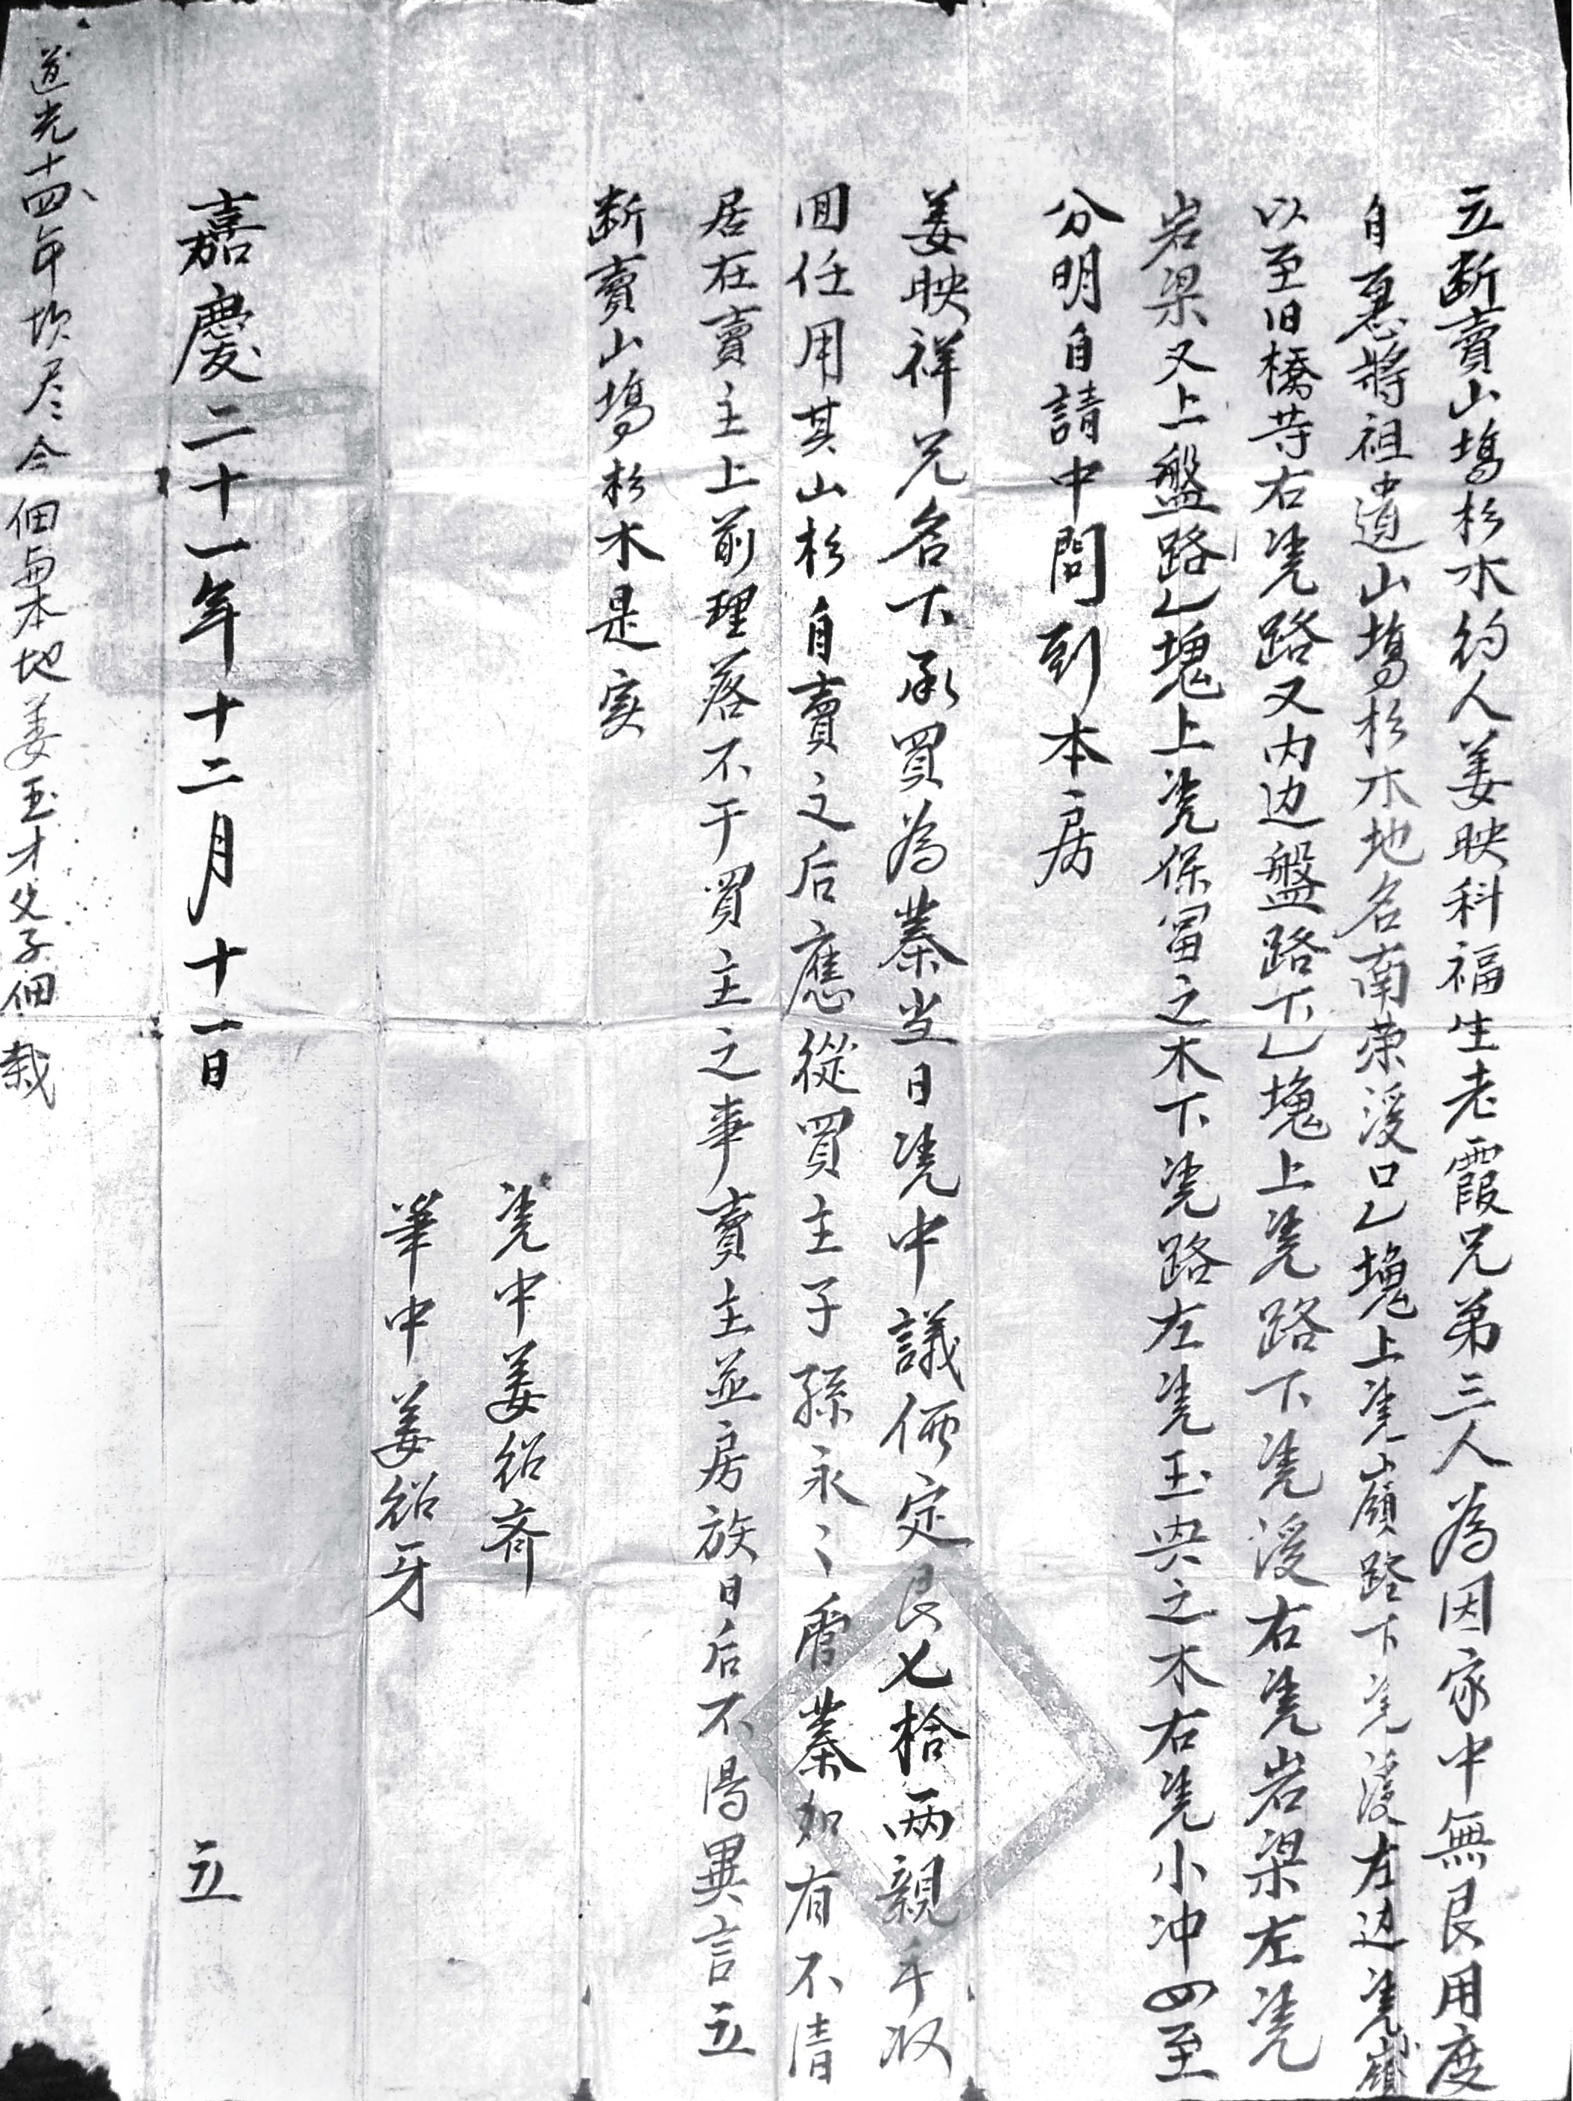 立断賣山塲杉木約人姜映科福生老霞兄弟三人為因家中無艮用度
自愿將祖遺山塲杉木地名南荣溪口乙塊上凴嶺路下凴溪左边凴嶺
以至旧橋苄右凴路又内边盤路下乙塊上凴路下凴溪右凴岩梁左凴
岩梁又上盤路乙塊上凴保冨之木下凴路左凴玉央之木右凴小冲四至
分明自請中問到本房
姜映祥兄名下承買為業当日凴中議価定艮七拾两親手收
囬任用其山杉自賣之后應從買主子孫永〻管業如有不清
居在賣主上前理落不干買主之事賣主並房族日后不淂異言立
断賣山塲杉木是实
凴中姜紹齐
筆中姜紹牙
嘉慶二十一年十二月十一日 立
道光十四年坎尽今佃与本地姜玉才父子佃栽